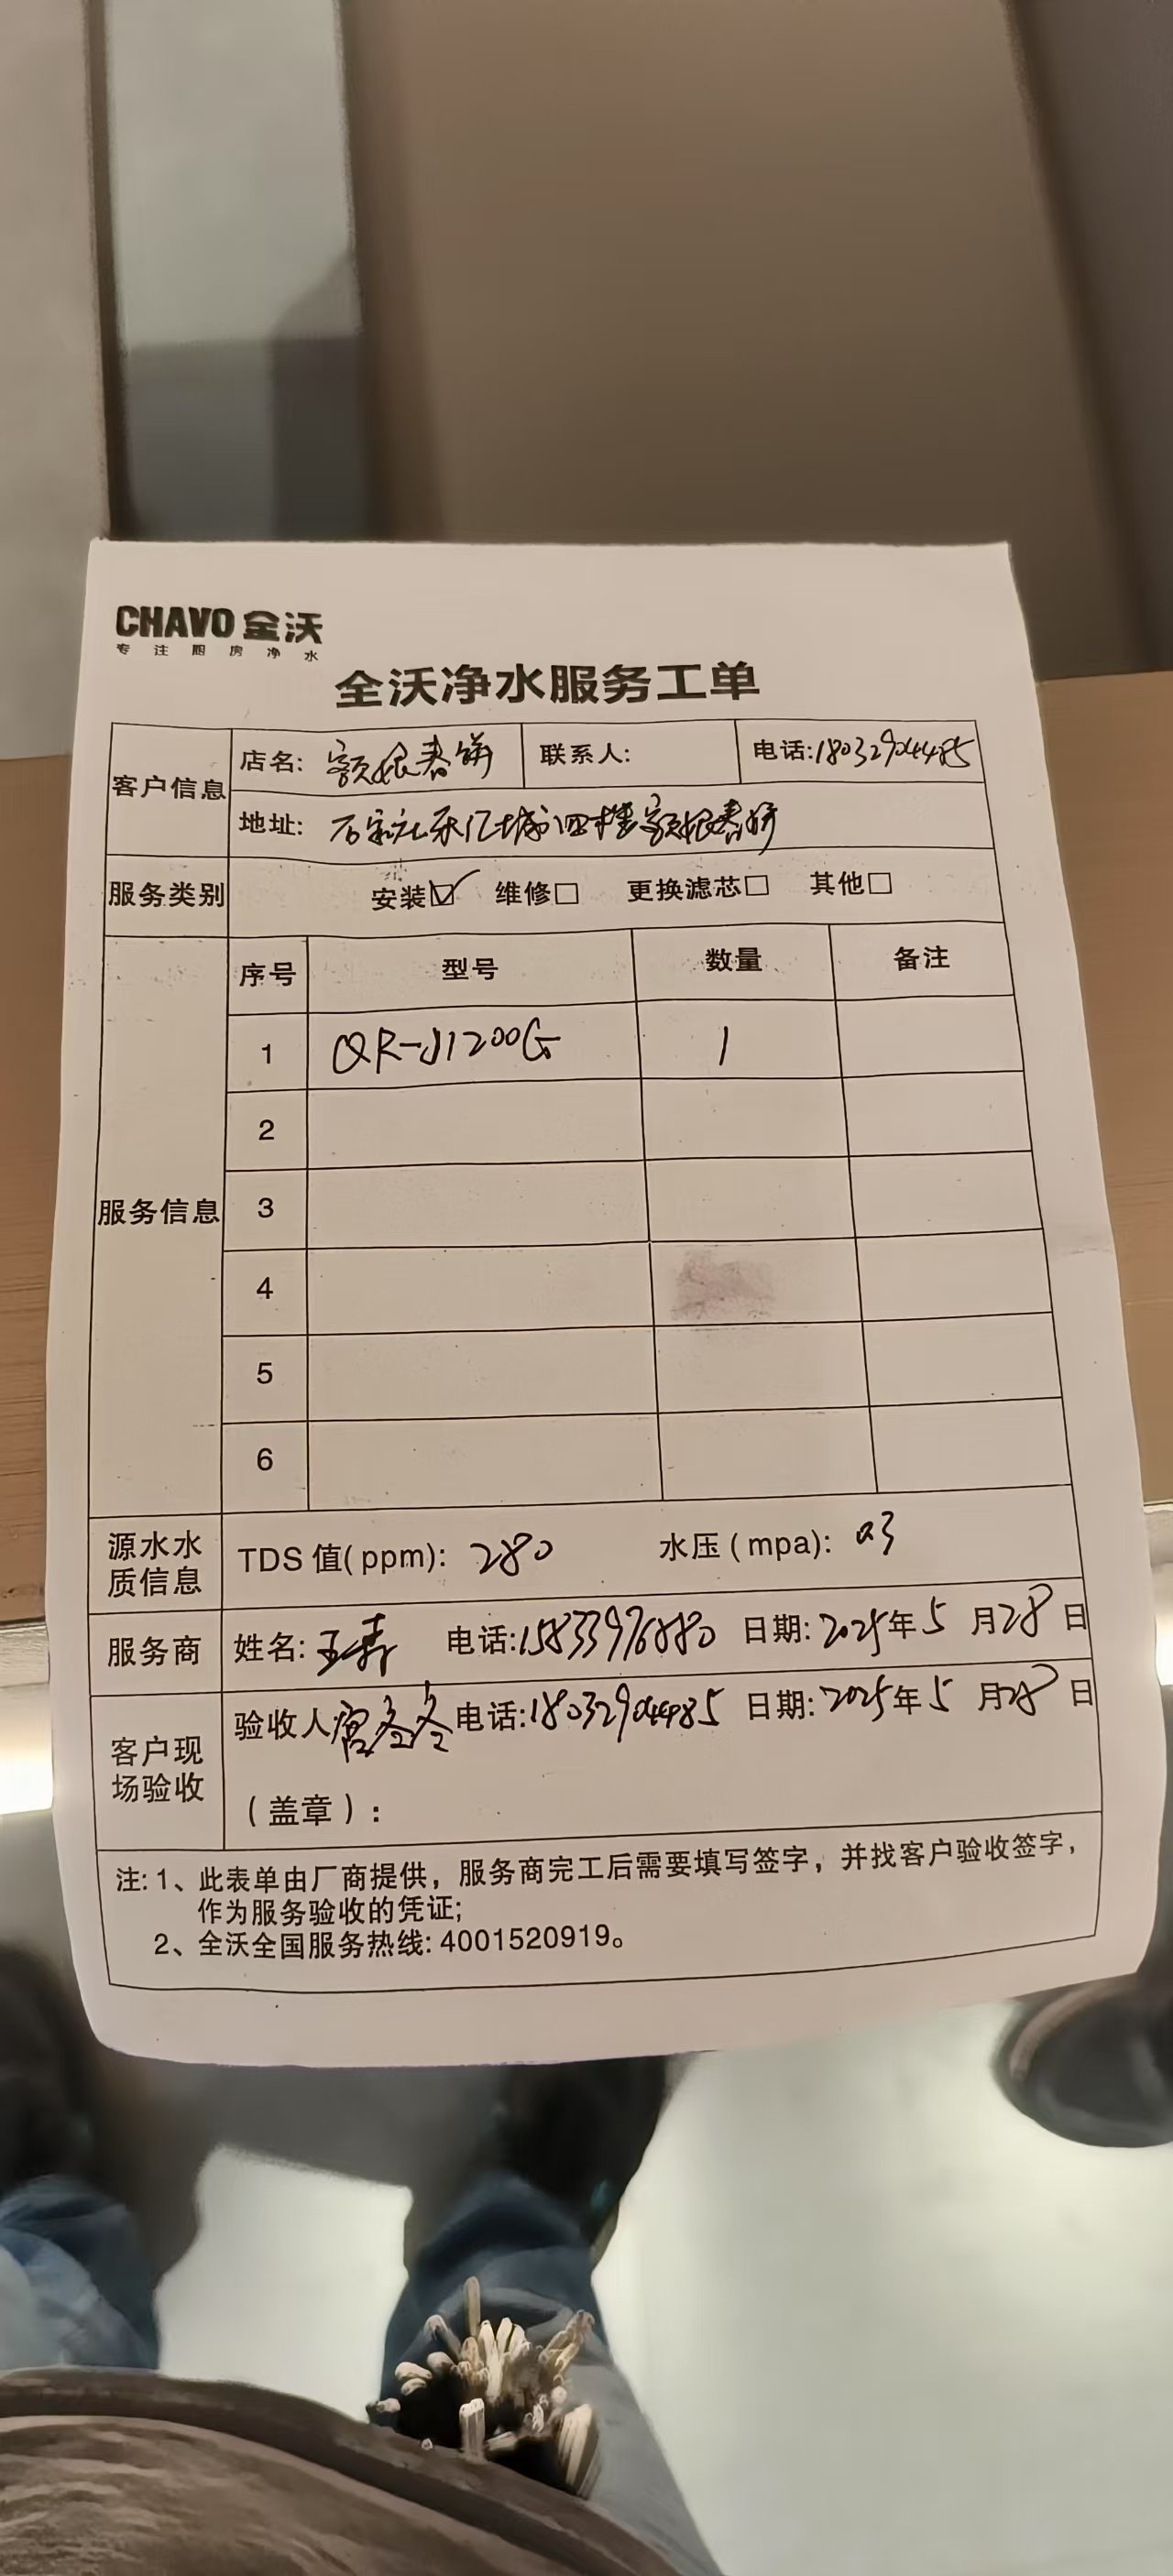 CHAVO 全沃
专注厨房净水
全沃净水服务工单
客户信息
店名: 额娘春饼 联系人: 电话:18032904485
地址: 石家庄乐汇城四楼额娘春饼
服务类别 安装☑ 维修□ 更换滤芯□ 其他□
服务信息
序号 型号 数量 备注
1 QR-J1200G 1
2
3
4
5
6
源水水质信息 TDS 值(ppm): 280 水压(mpa): 0.3
服务商 姓名: 王 电话:15833976880 日期: 2025年5月28日
客户现场验收
验收人 电话:18032904485 日期: 2025年5月28日
(盖章):
注: 1、此表单由厂商提供，服务商完工后需要填写签字，并找客户验收签字，
作为服务验收的凭证;
2、全沃全国服务热线: 4001520919。